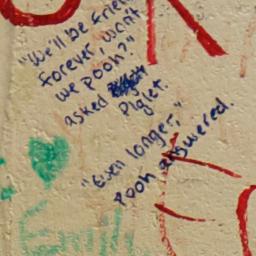 "We'll be Friends
forever, won't
we Pooh?"
asked Piglet.
"Even longer,"
Pooh answered.
Emily